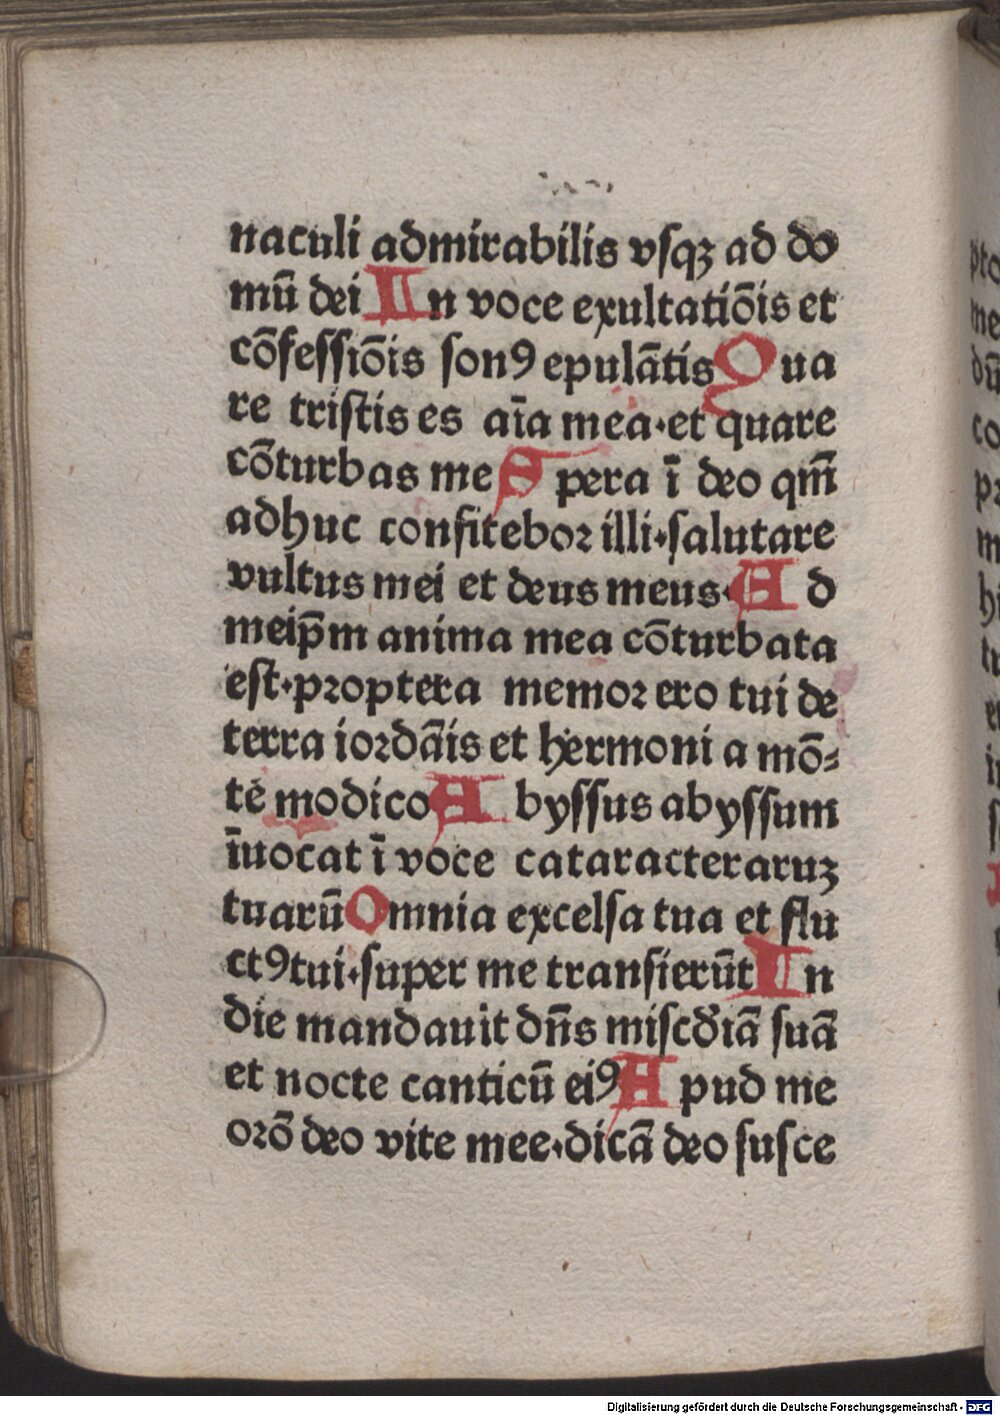 naculi admirabilis vsqꝫ ad do
mū dei In voce exultatiōis et
cōfessiōis sonꝰ epulātis Qua
re tristis es aīa mea·et quare
cōturbas me Spera ī deo qm̄
adhuc confitebor illi·salutare
vultus mei et deus meus· Ad
meip̄m anima mea cōturbata
est·proptera memor ero tui de
terra iordāis et hermoni a mō⸗
te modico Abyssus abyssum
īuocat ī voce cataracteraruꝫ
tuarū Omnia excelsa tua et flu
ctꝰ tui·super me transierūt In
die mandauit dn̄s misc̄diā suā
et nocte canticū eiꝰ Apud me
orō deo vite mee·dicā deo susce
pto
me
dū
co
Digitalisierung gefördert durch die Deutsche Forschungsgemeinschaft - DFG